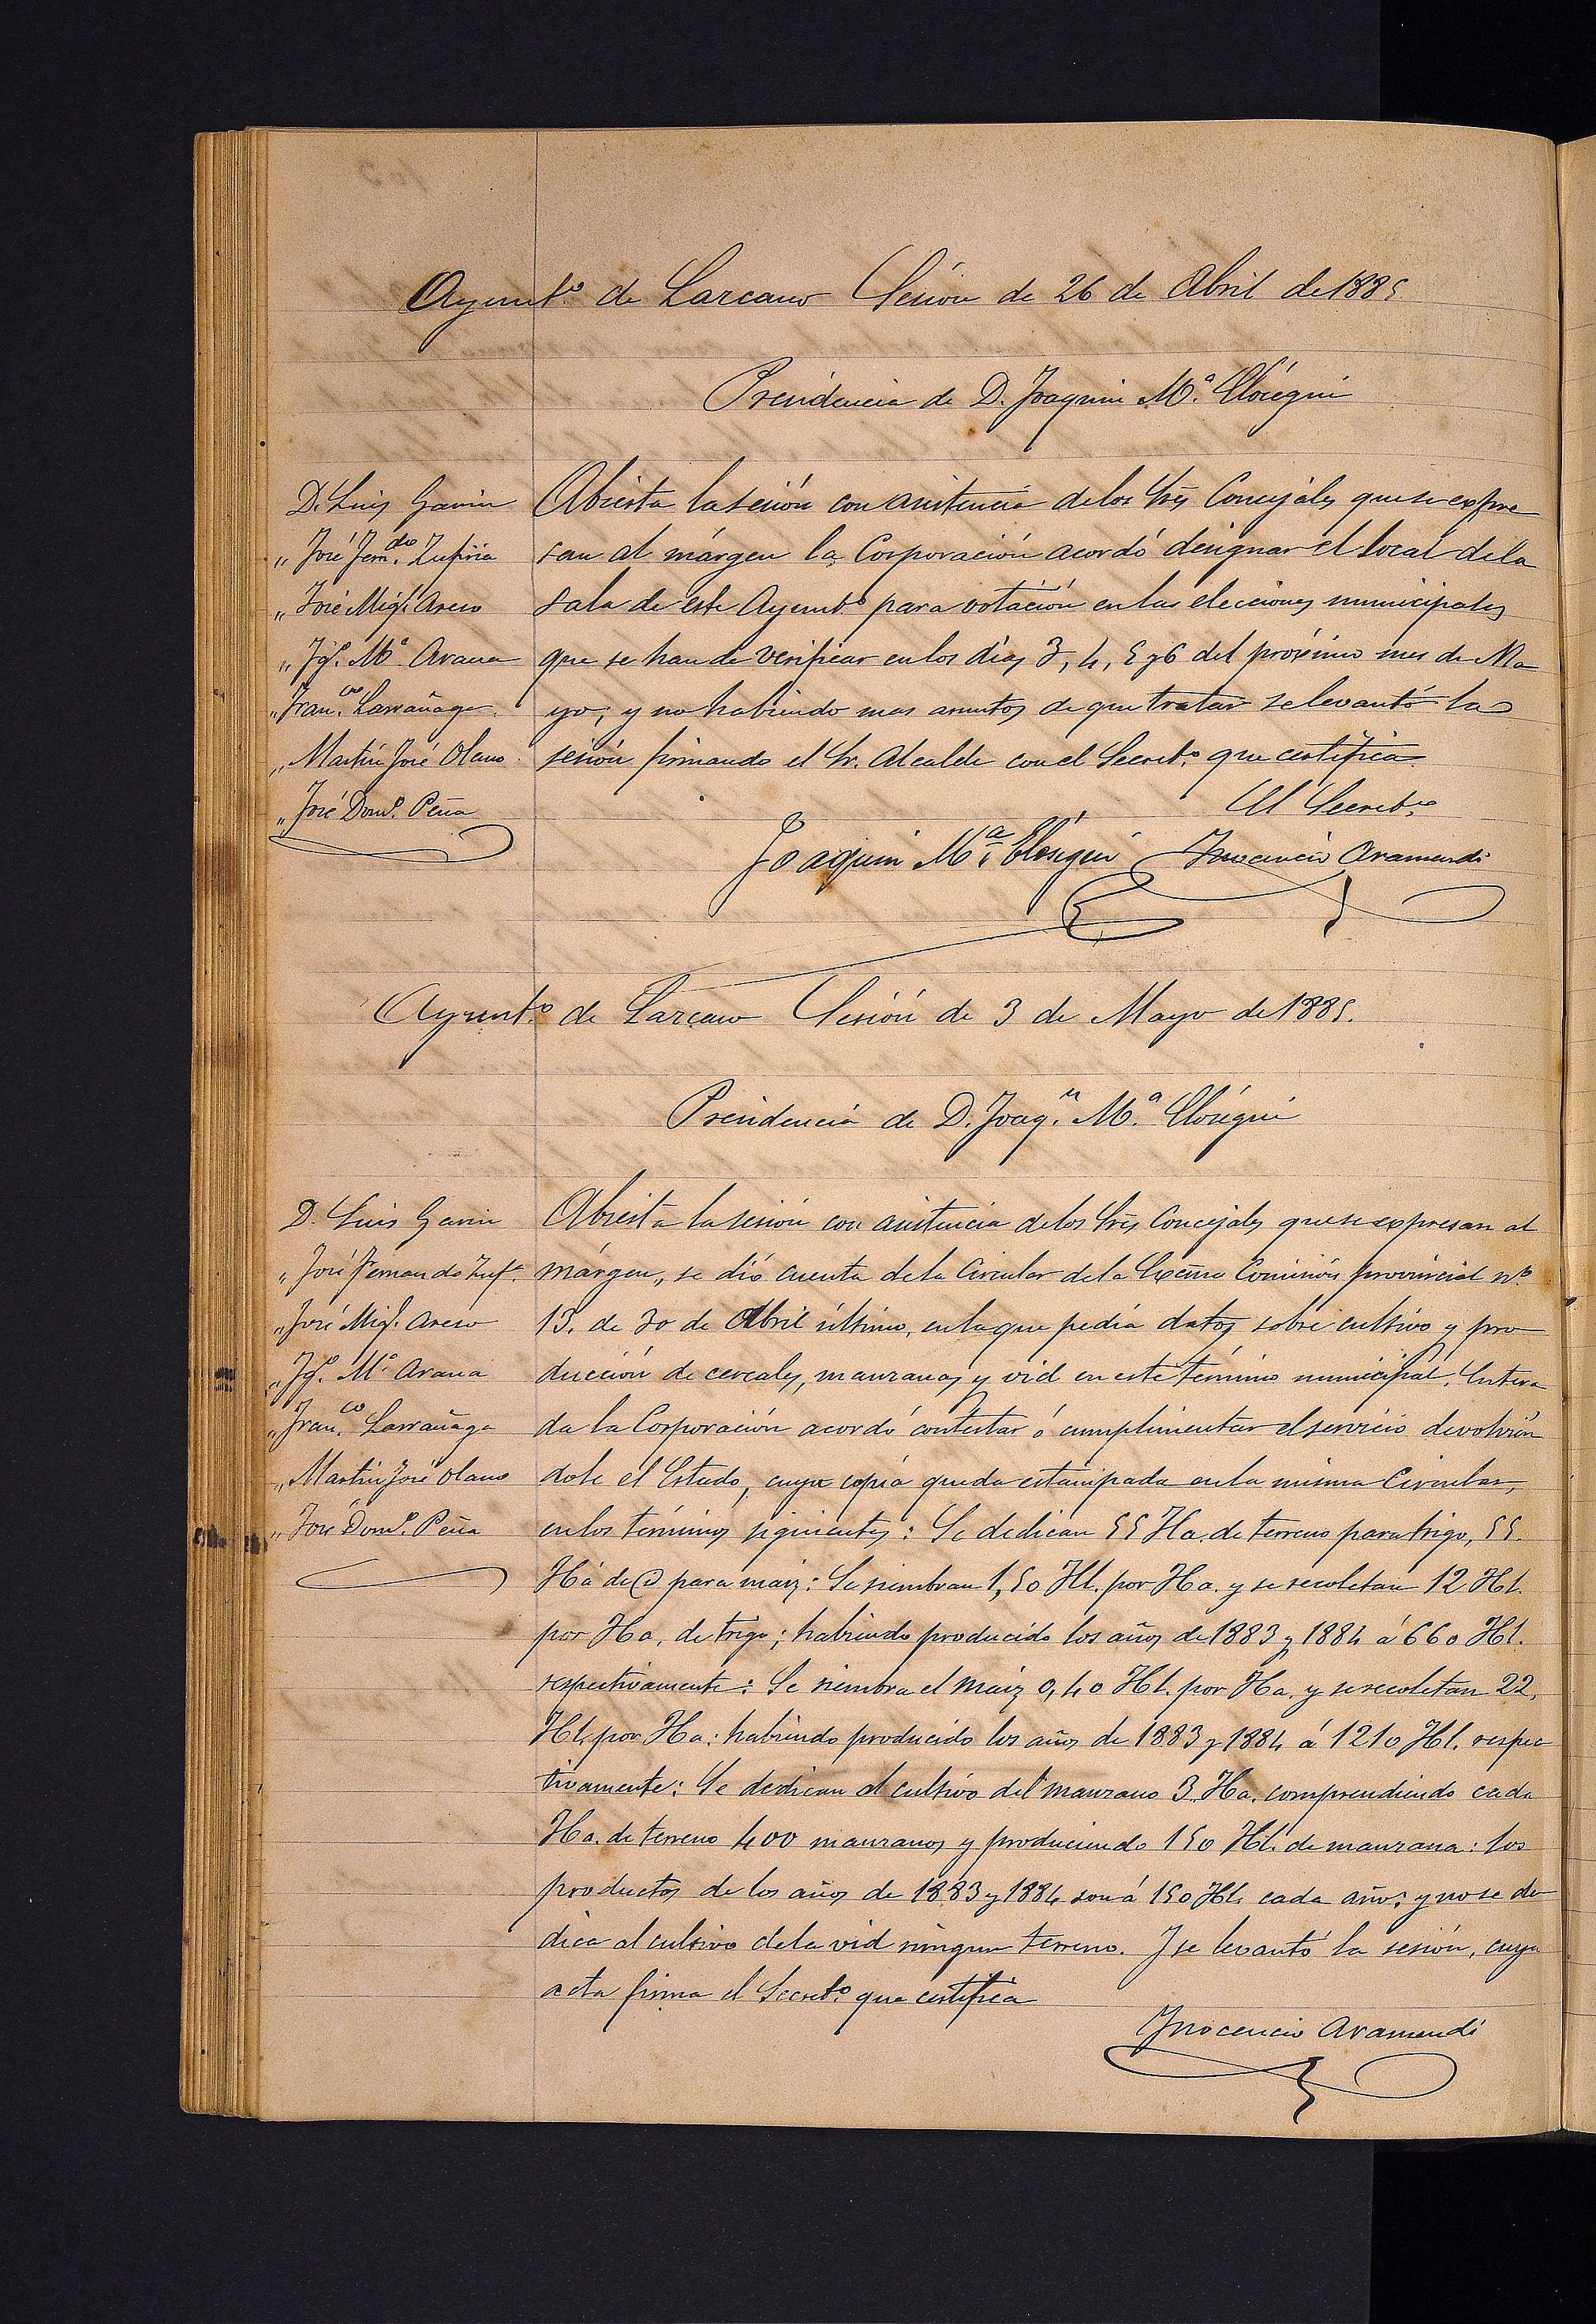 Ayunt.º de Lazcano Sesión de 26 de Abril de 1885.
Presidencia de D. Joaquin M.ª Elósegui
D. Luis Gavin
„ José Fern.do Zufiria
„ José Migl. Areso
„ Jq. M.ª Arana
„ Fran.co Larrañaga
„ Martin José Olano
„ José Domº. Peña
Abierta la sesión con asistencia de los Sres Concejales que se expre
san al márgen la Corporación acordó designar el local de la
sala de este Ayunt.º para votación en las elecciones municipales
que se han de verificar en los dias 3, 4, 5 y 6 del próximo mes de Ma
yo; y no habiendo mas asuntos de que tratar se levantó la
sesión firmando el Sr. Alcalde con el Secret.º que certifica.
El Secret.rio
Joaquin M.ª Elósegui Inocencio Aramendi
Ayunt.º de Lazcano Sesión de 3 de Mayo de 1885.
Presidencia de D. Joaq.n M.ª Elósegui
D. Luis Gavin
„ José Fernando Zufª.
„ José Migl. Areso
„ Jq. M.ª Arana
„ Fran.co Larrañaga
„ Martin José Olano
„ José Domº. Peña
Abierta la sesión con asistencia de los Sres Concejales que se expresan al
márgen, se dió cuenta de la Circular de la Excma Comisión provincial nº.
13. de 30 de Abril último, en la que pedia datos sobre cultivo y pro
ducción de cereales, manzanas y vid en este término municipal. Entera
da la Corporación acordó contestar ó cumplimentar el servicio devolvién
dole el Estado, cuya copia queda estampada en la misma Circular,
en los términos siguientes: Se dedican 55 Ha. de terreno para trigo, 55.
Há de @ para maiz: Se siembran 1,50 Hl. por Ha. y se recoletan 12 Hl.
por Ha, de trigo; habiendo producido los años de 1883 y 1884 á 660 Hl.
respectivamente: Se siembra el maiz 0,40 Hl. por Ha. y se recoletan 22.
Hl. por Ha: habiendo producido los años de 1883 y 1884 á 1210 Hl. respec
tivamente: Se dedican al cultivo del manzano 3 Ha. comprendiendo cada
Ha. de terreno 400 manzanos y produciendo 150 Hl. de manzana: los
productos de los años de 1883 y 1884 son á 150 Hl. cada año: y no se de
dica al cultivo de la vid ningun terreno. Y se levantó la sesión, cuya
acta firma el Secret.º que certifica
Inocencio Aramendi